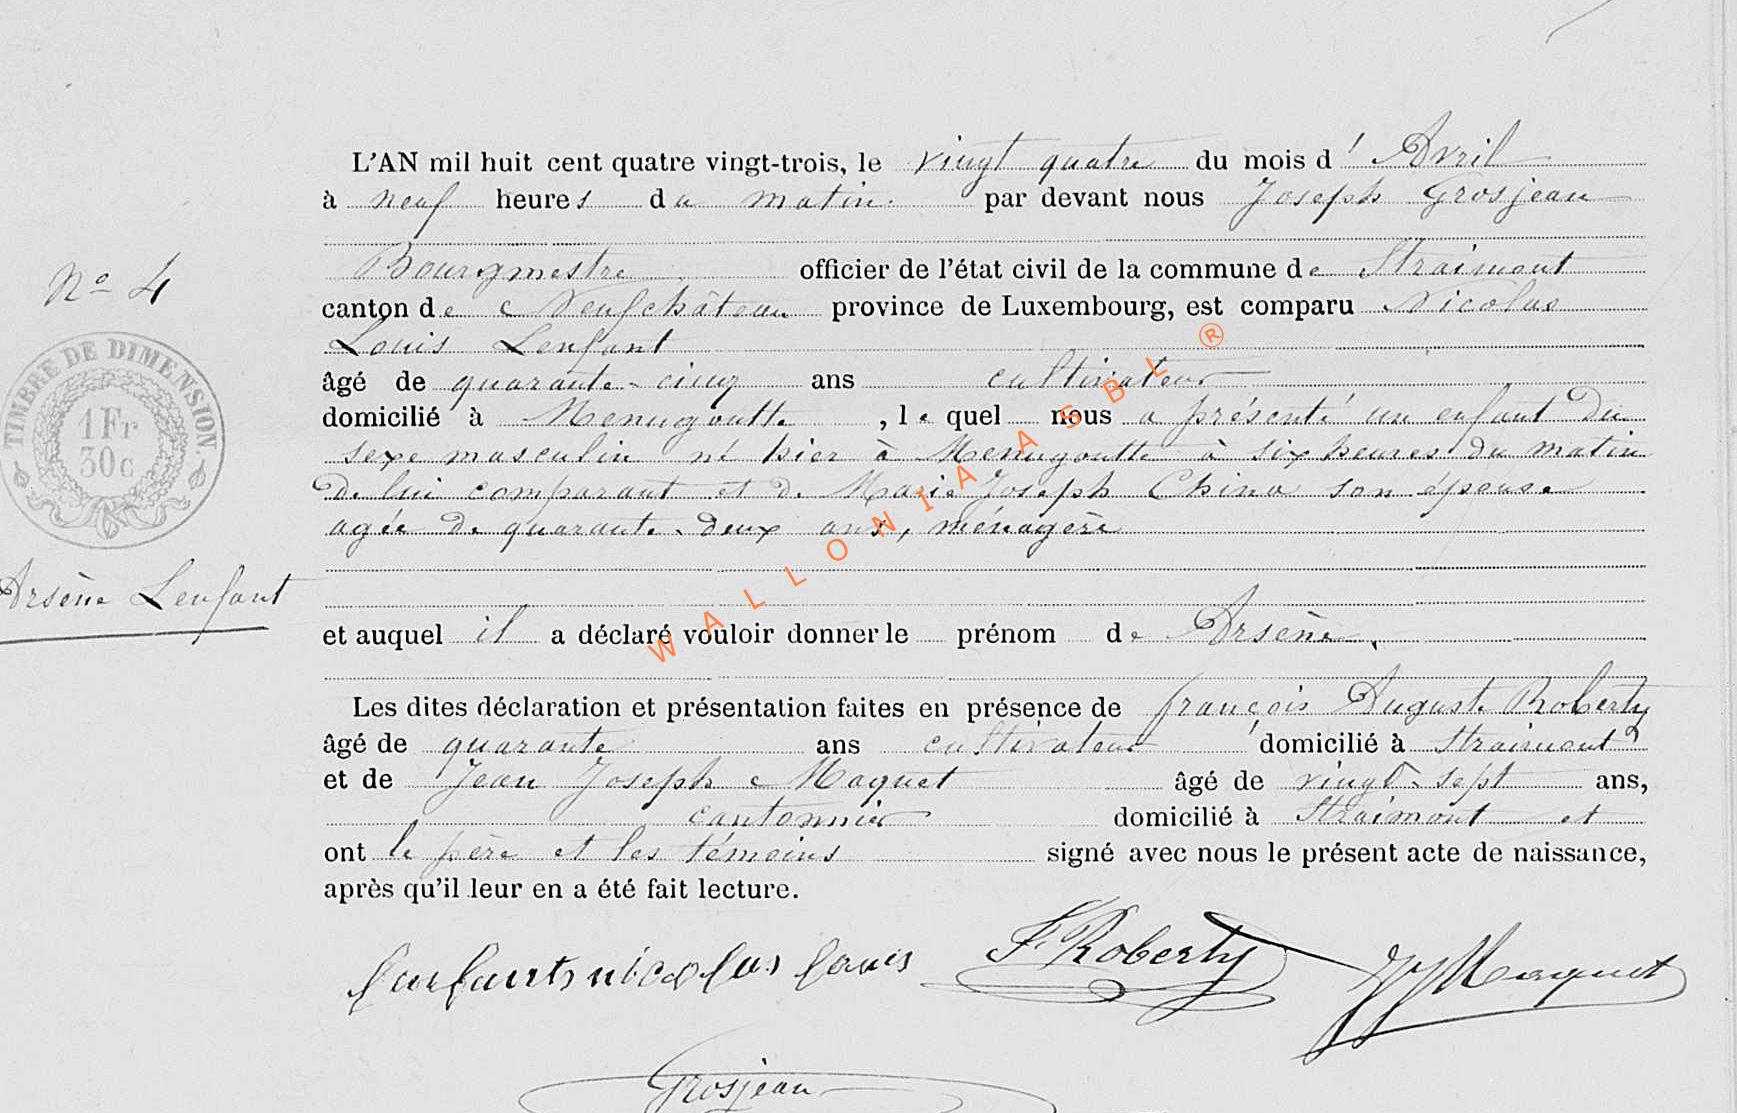 L'AN mil huit cent quatre vingt-trois, le vingt quatre du mois d' Avril
à neuf heures du matin par devant nous Joseph Grosjean
Bourgmestre officier de l'état civil de la commune de Straimont
canton de Neufchâteau province de Luxembourg, est comparu Nicolas
Louis Lenfant
âgé de quarante-cinq ans cultivateur
domicilié à Menugoutte, lequel nous a présenté un enfant du
sexe masculin né hier à Menugoutte à six heures du matin
de lui comparant et de Marie Joseph China son épouse
agée de quarante-deux ans, ménagère
et auquel il a déclaré vouloir donner le prénom de Arsène.
Les dites déclaration et présentation faites en présence de françois Auguste Roberty
âgé de quarante ans cultivateur domicilié à Straimont
et de Jean Joseph Maquet âgé de vingt-sept ans,
cantonnier domicilié à Straimont et
ont le père et les témoins signé avec nous le présent acte de naissance,
après qu'il leur en a été fait lecture.
No 4
TIMBRE DE DIMENSION.
1 Fr
30 c
Arsène Lenfant
WALLONIA ASBL ®
nicolas louis
F. Roberty
JJ Maquet
Grosjean